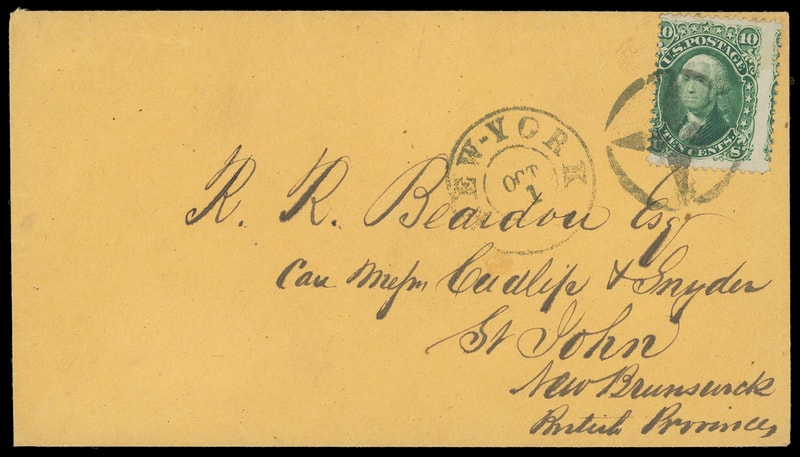 10 10
U.S. POSTAGE
TEN CENTS.
NEW-YORK
OCT
1
R. R. Beardon Esq
Care Messrs Cudlip & Snyder
St John
New Brunswick
British Provinces